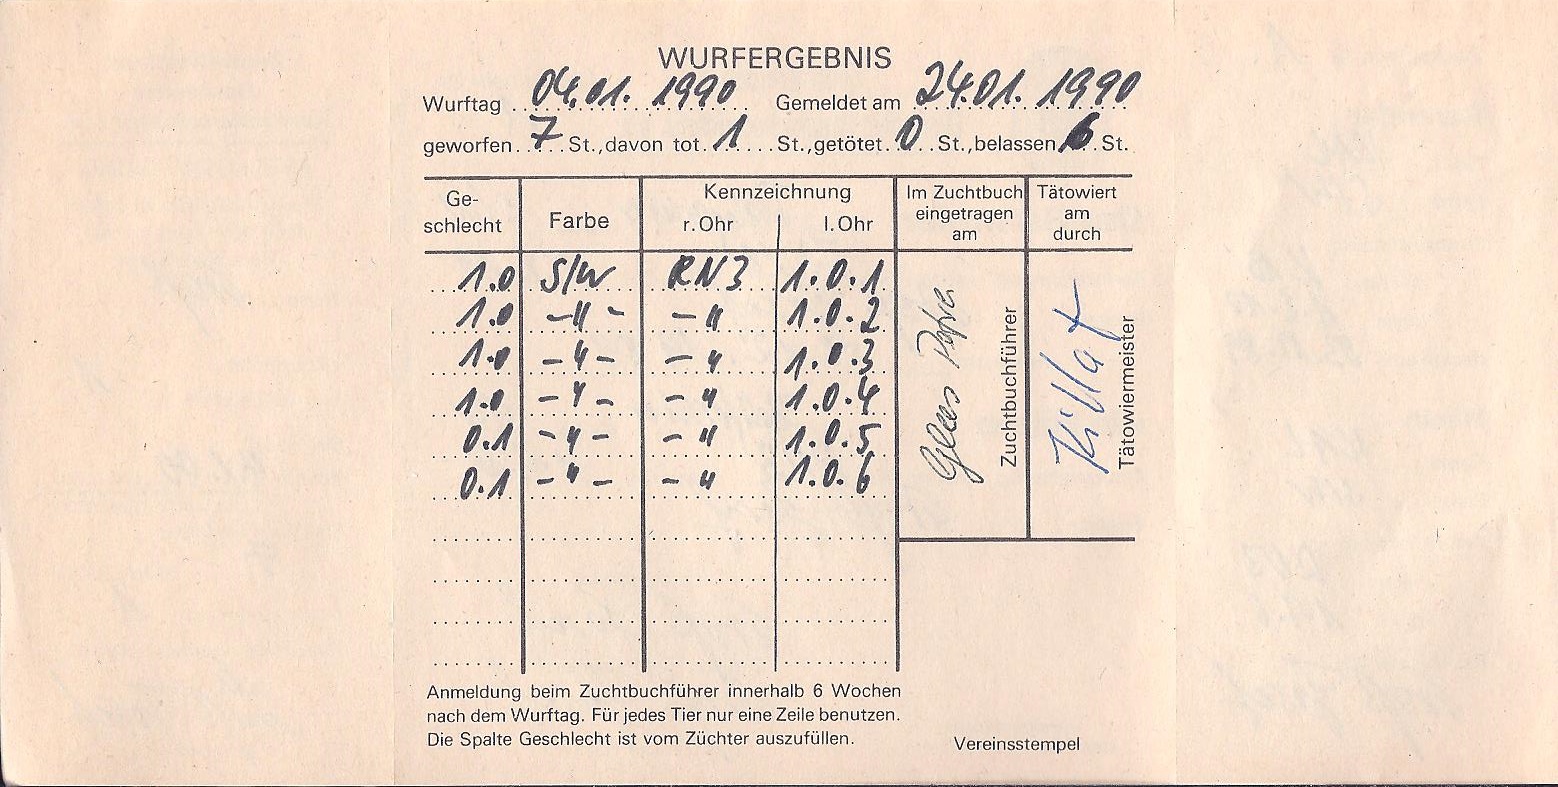 WURFERGEBNIS
Wurftag 04.01.1990 Gemeldet am 24.01.1990
geworfen 7 St., davon tot 1 St., getötet 0 St., belassen 6 St.
Ge-
schlecht
Farbe
Kennzeichnung
r. Ohr l. Ohr
Im Zuchtbuch
eingetragen
am
Tätowiert
am
durch
1.0 S/W RN3 1.0.1
1.0 -"- -" 1.0.2
1.0 -"- -" 1.0.3
1.0 -"- -" 1.0.4
0.1 -"- -" 1.0.5
0.1 -"- -" 1.0.6
Zuchtbuchführer
Tätowiermeister
Anmeldung beim Zuchtbuchführer innerhalb 6 Wochen
nach dem Wurftag. Für jedes Tier nur eine Zeile benutzen.
Die Spalte Geschlecht ist vom Züchter auszufüllen.
Vereinsstempel